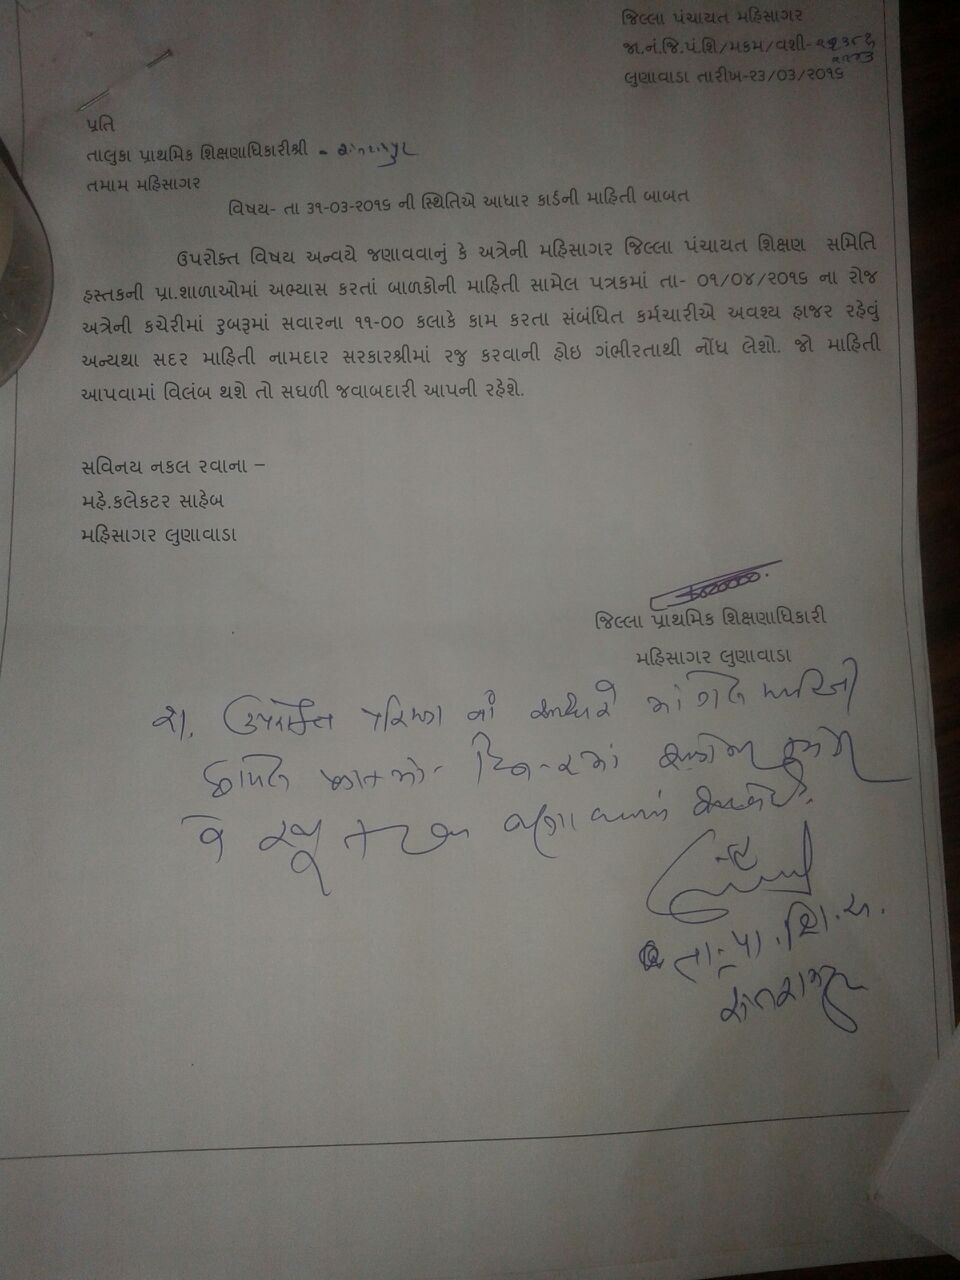 જિલ્લા પંચાયત મહિસાગર
જા.નં.જિ.પં.શિ/મકમ/વશી-
લુણાવાડા તારીખ-૨૩/૦૩/૨૦૧૬
પ્રતિ
તાલુકા પ્રાથમિક શિક્ષણાધિકારીશ્રી - સંતરામપુર
તમામ મહિસાગર
વિષય- તા ૩૧-૦૩-૨૦૧૬ ની સ્થિતિએ આધાર કાર્ડની માહિતી બાબત
ઉપરોક્ત વિષય અન્વયે જણાવવાનું કે અત્રેની મહિસાગર જિલ્લા પંચાયત શિક્ષણ સમિતિ
હસ્તકની પ્રા.શાળાઓમાં અભ્યાસ કરતાં બાળકોની માહિતી સામેલ પત્રકમાં તા- ૦૧/૦૪/૨૦૧૬ ના રોજ
અત્રેની કચેરીમાં રુબરૂમાં સવારના ૧૧-૦૦ કલાકે કામ કરતા સંબંધિત કર્મચારીએ અવશ્ય હાજર રહેવું
અન્યથા સદર માહિતી નામદાર સરકારશ્રીમાં રજુ કરવાની હોઇ ગંભીરતાથી નોંધ લેશો. જો માહિતી
આપવામાં વિલંબ થશે તો સઘળી જવાબદારી આપની રહેશે.
સવિનય નકલ રવાના –
મહે.કલેકટર સાહેબ
મહિસાગર લુણાવાડા
જિલ્લા પ્રાથમિક શિક્ષણાધિકારી
મહિસાગર લુણાવાડા
ઉપરોક્ત
તા. પ્રા. શિ. અ.
સંતરામપુર